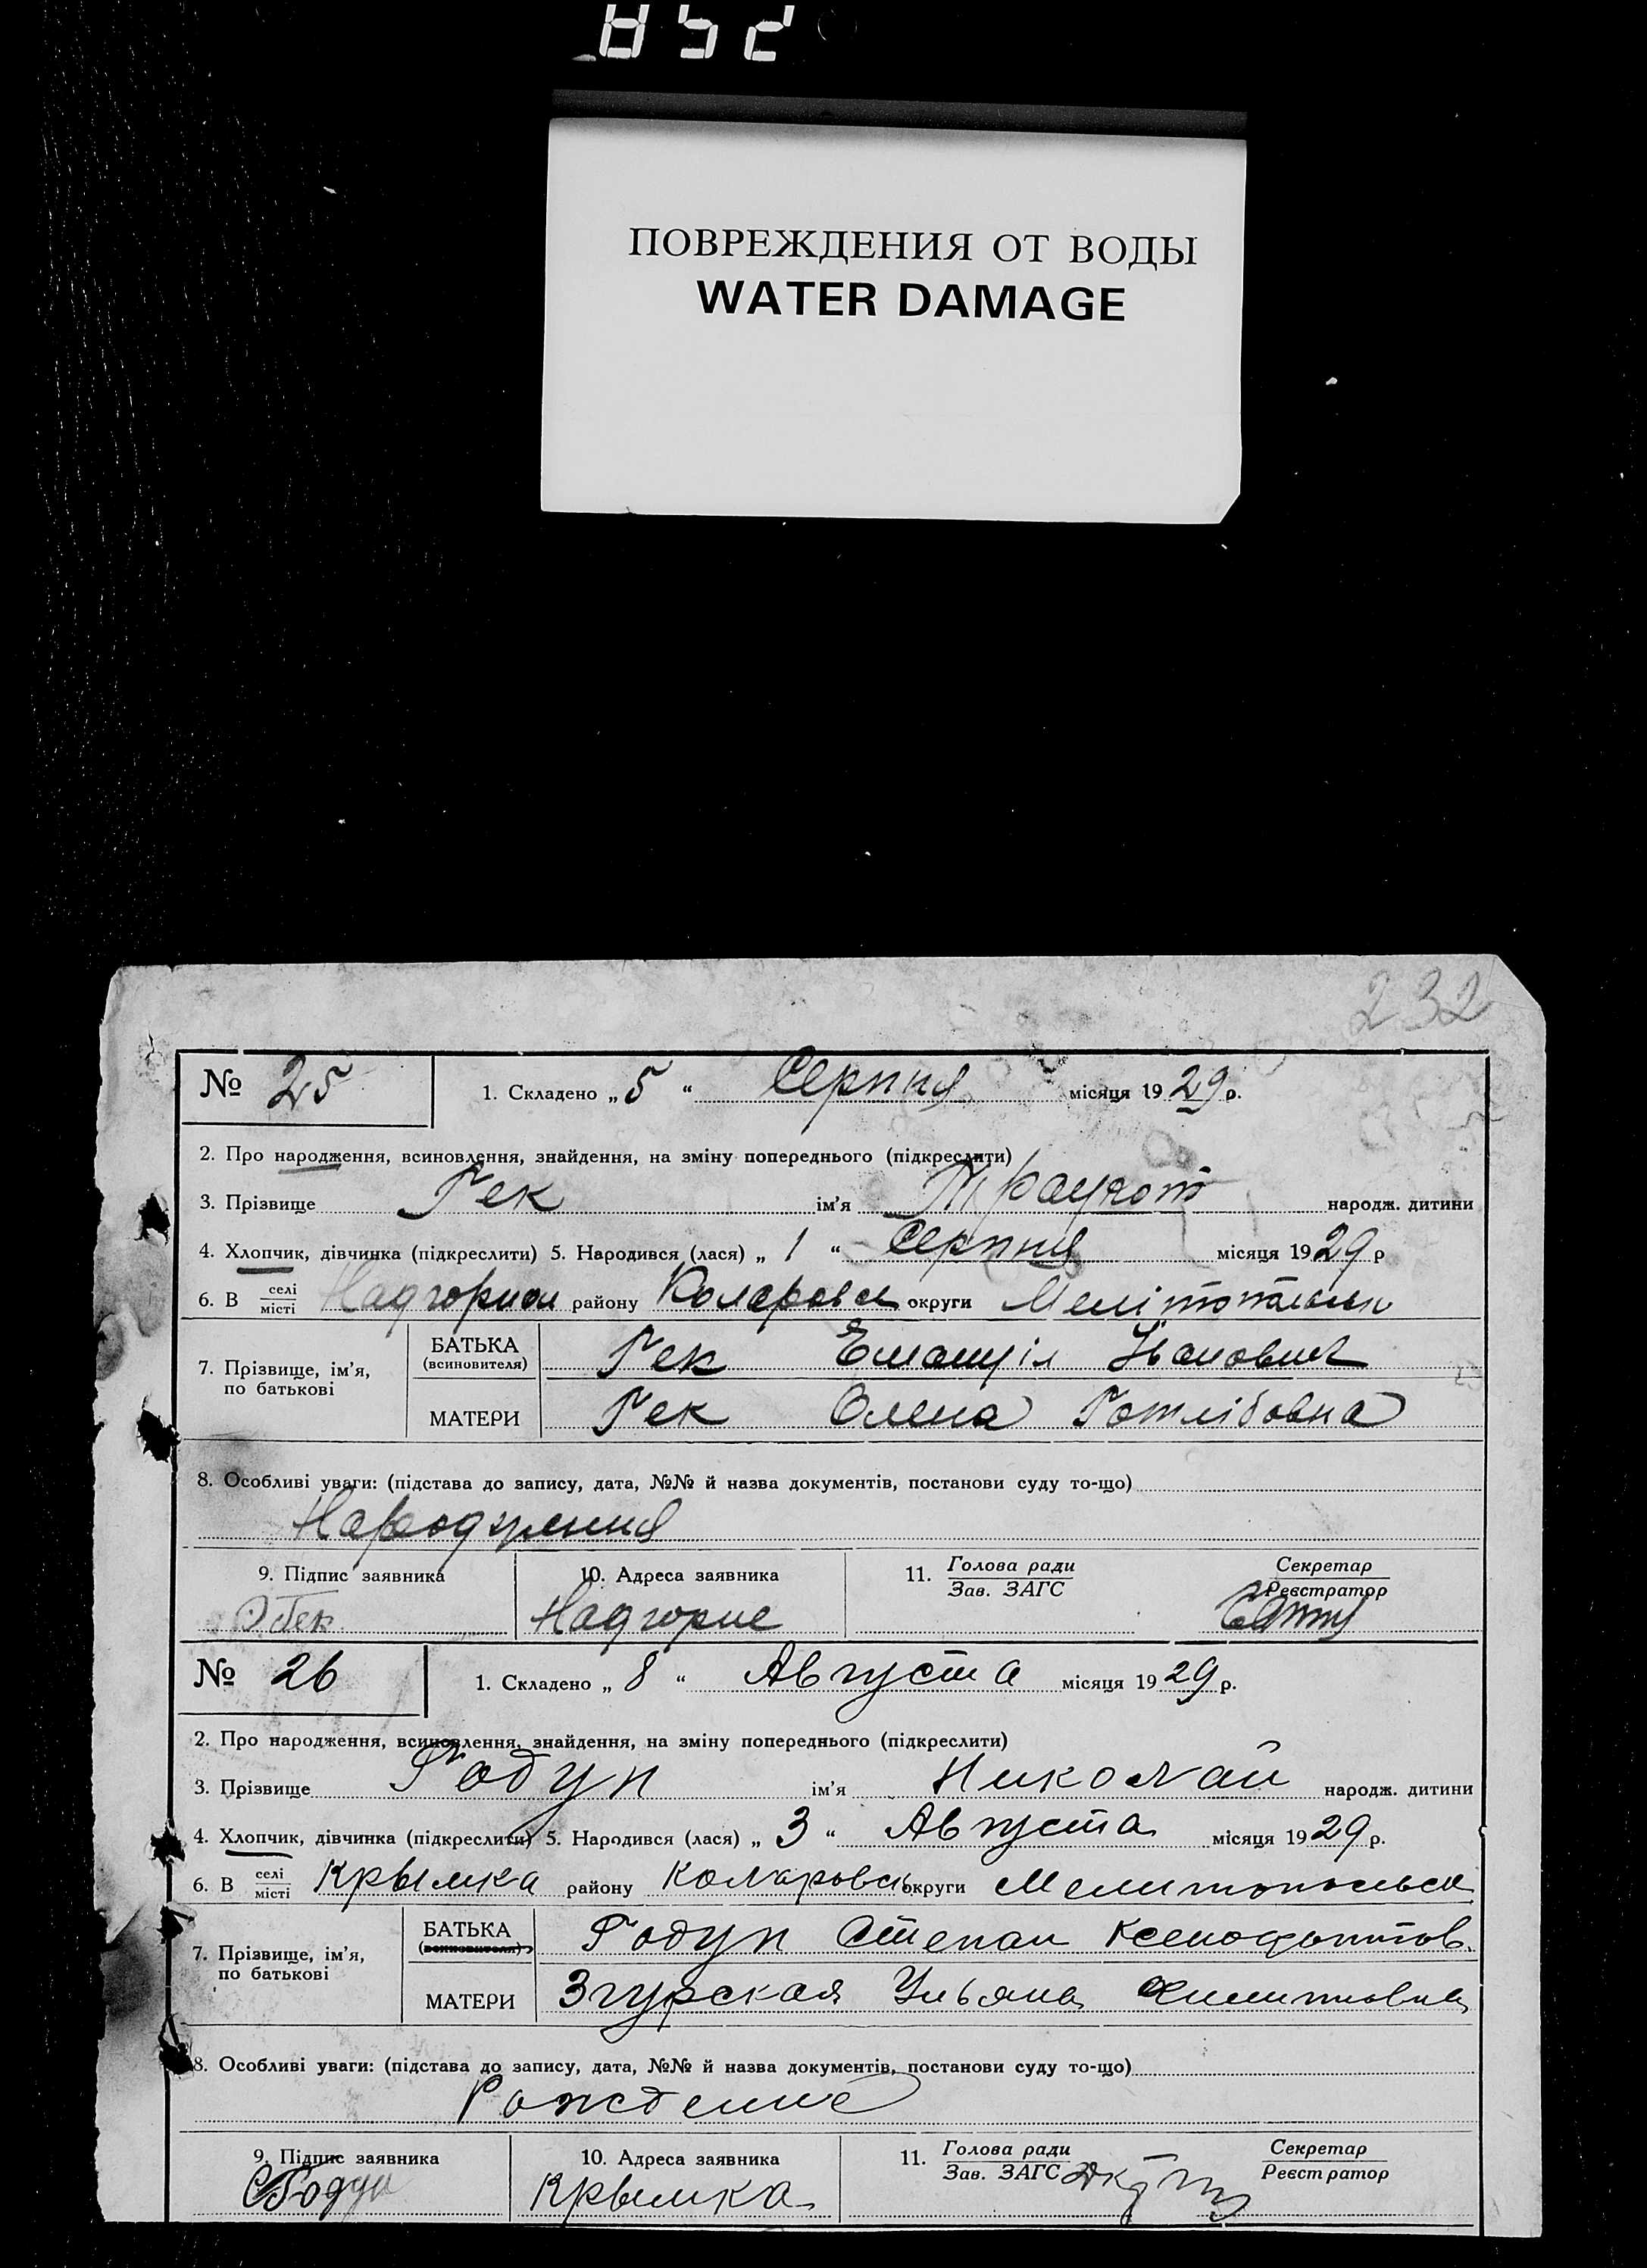 852
ПОВРЕЖДЕНИЯ ОТ ВОДЫ
WATER DAMAGE
232
№ 25 1. Складено „ 5 “ Серпня місяця 1929 р.
2. Про народження, всиновлення, знайдення, на зміну попереднього (підкреслити)
3. Прізвище Гек ім’я Траугот народж. дитини
4. Хлопчик, дівчинка (підкреслити) 5. Народився (лася) „ 1 “ Серпня місяця 1929 р
6. В селі/місті району округи
7. Прізвище, ім’я, по батькові
БАТЬКА (всиновителя) Гек Емануіл Іванович
МАТЕРИ Гек Олена Готлібовна
8. Особливі уваги: (підстава до запису, дата, №№ й назва документів, постанови суду то-що)
Народження
9. Підпис заявника 10. Адреса заявника 11. Голова ради/Зав. ЗАГС Секретар/Реєстратор
Гек Надгорне
№ 26 1. Складено „ 8 “ Августа місяця 1929 р.
2. Про народження, всиновлення, знайдення, на зміну попереднього (підкреслити)
3. Прізвище Годун ім’я Николай народж. дитини
4. Хлопчик, дівчинка (підкреслити) 5. Народився (лася) „ 3 “ Августа місяця 1929 р.
6. В селі/місті Крымка району Коларовск округи Мелитопольск
7. Прізвище, ім’я, по батькові
БАТЬКА (всиновителя) Годун Степан Ксенофонтов.
МАТЕРИ Згурская Ульяна
8. Особливі уваги: (підстава до запису, дата, №№ й назва документів, постанови суду то-що)
Рождение
9. Підпис заявника 10. Адреса заявника 11. Голова ради/Зав. ЗАГС Секретар/Реєстратор
СГодун Крымка